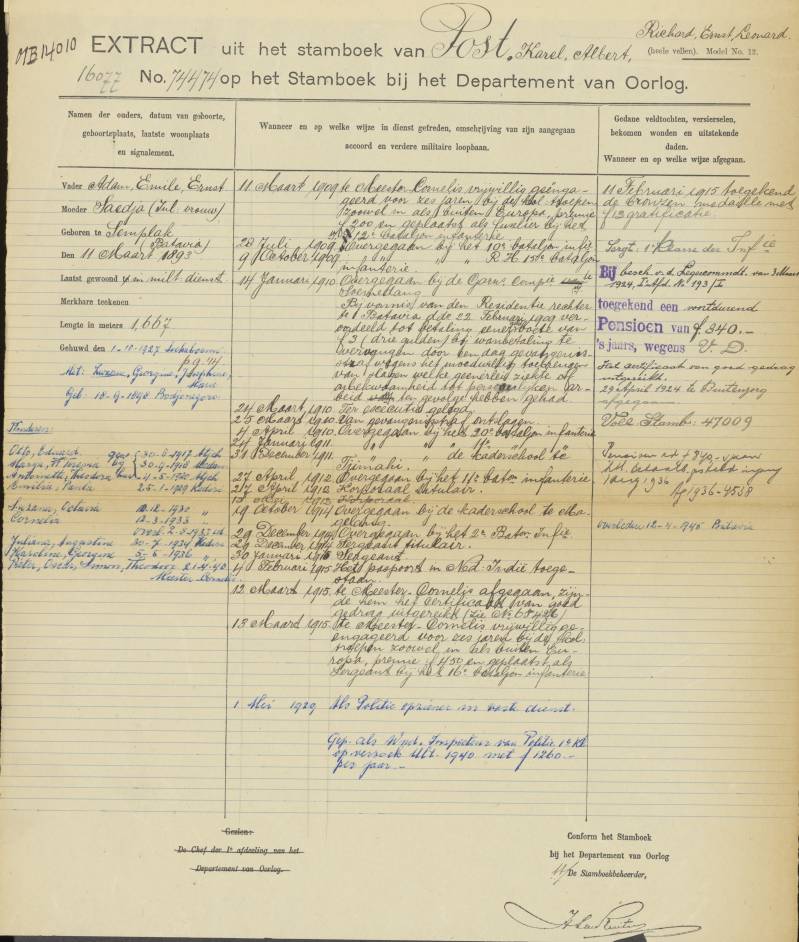 MB 14010
EXTRACT uit het stamboek van Post, Karel, Albert, Richard, Ernst, Leonard.
(heele vellen). Model No. 12.
16077 No. 74474 op het Stamboek bij het Departement van Oorlog.
Namen der ouders, datum van geboorte,
geboorteplaats, laatste woonplaats
en signalement.
Vader Adam, Emile, Ernst
Moeder Saedja (Inl: vrouw)
Geboren te Semplak
(Batavia)
Den 11 Maart 1893
Laatst gewoond in milt dienst
Merkbare teekenen
Lengte in meters 1,667
Gehuwd den 1-10-1927 Soekaboemi
met:
Geb: 10-9-1890 Bodjonegoro
Kinderen:
Suzana, Octavia 12.12.1930 "
Cornelia 12-3-1933 "
Juliana, Augustina 30-7-1934 Kediri
Karoline, Georgine 5-6-1936 "
Pieter, Oscar, Simon, Theodoor 21-4-40
Meester Cornelis
Wanneer en op welke wijze in dienst getreden, omschrijving van zijn aangegaan
accoord en verdere militaire loopbaan.
11 Maart 1909 te Meester Cornelis vrijwillig geënga-
geerd voor zes jaren bij de kol: troepen
zoowel in als buiten Europa, premie
f 200 en geplaatst als fuselier bij het
12e bataljon infanterie
28 Juli 1909 Overgegaan bij het 10e bataljon infie
9 October 1909 " " " R. H. 15de bataljon
infanterie.
14 Januari 1910 Overgegaan bij de Garn: Compie te
Bij vonnis van den Residentie rechter
te Batavia dde 22 Februari 1909 ver-
oordeeld tot betaling eener boete van
f 3 (drie gulden) bij wanbetaling te
vervangen door een dag gevangenis-
straf wegens het moedwillig toebrengen
van slagen welke geenerlei ziekte of
onbekwaamheid tot persoonlijken ar-
beid ten gevolge hebben gehad
24 Maart 1910. Ter executie gelegd
25 Maart 1910 Van gevangenisstraf ontslagen
4 april 1910. Overgegaan bij het 20e bataljon infanterie
24 Januari 1911. " " " 11e " "
31 December 1911. " " de kaderschool te
Tjimahi.
27 April 1912 Overgegaan bij het 11e baton infanterie
27 April 1912 Korporaal titulair.
Korporaal
19 October 1914 Overgegaan bij de kaderschool te Ma-
gelang.
29 December 1914 Overgegaan bij het 2e Baton Infie
29 December 1914 Sergeant titulair.
30 Januari 1915 Sergeant
4 Februari 1915 Het paspoort in Ned. Indië toege-
staan.
12 Maart 1915. te Meester Cornelis afgegaan, zijn-
de hem het certificaat van goed
gedrag uitgereikt (Zie No 68426)
13 Maart 1915. Te Meester-Cornelis vrijwillig ge-
engageerd voor zes jaren bij de kol:
troepen zoowel in als buiten Eu-
ropa, premie f 450 en geplaatst als
Sergeant bij het 16e bataljon infanterie
1 Mei 1929 Als Politie opziener in vaste dienst.
Gep. als Wnd. Inspecteur van Politie 1e Kl.
op verzoek Ult. 1940 met f 1260.-
per jaar.-
Gedane veldtochten, versierselen,
bekomen wonden en uitstekende
daden.
Wanneer en op welke wijze afgegaan.
11 Februari 1915 toegekend
de bronzen medaille met
f 12 gratificatie.
Sergt. 1e Klasse der Infie
Bij besch. v. d. Legercommdt. van 3 Maart
1924, Ie Afd. No 193/I
toegekend een voortdurend
Pensioen van f 340.-
's jaars, wegens V. D.
Het certificaat van goed gedrag
uitgereikt.
29 April 1924 te Buitenzorg
afgegaan.
Voor Stamb: 47009
Aug 1936
Ag 1936-4538
overleden 12-4-1945 Batavia
Gezien:
De Chef der 1e afdeeling van het
Departement van Oorlog.
Conform het Stamboek
bij het Departement van Oorlog
De Stamboekbeheerder,